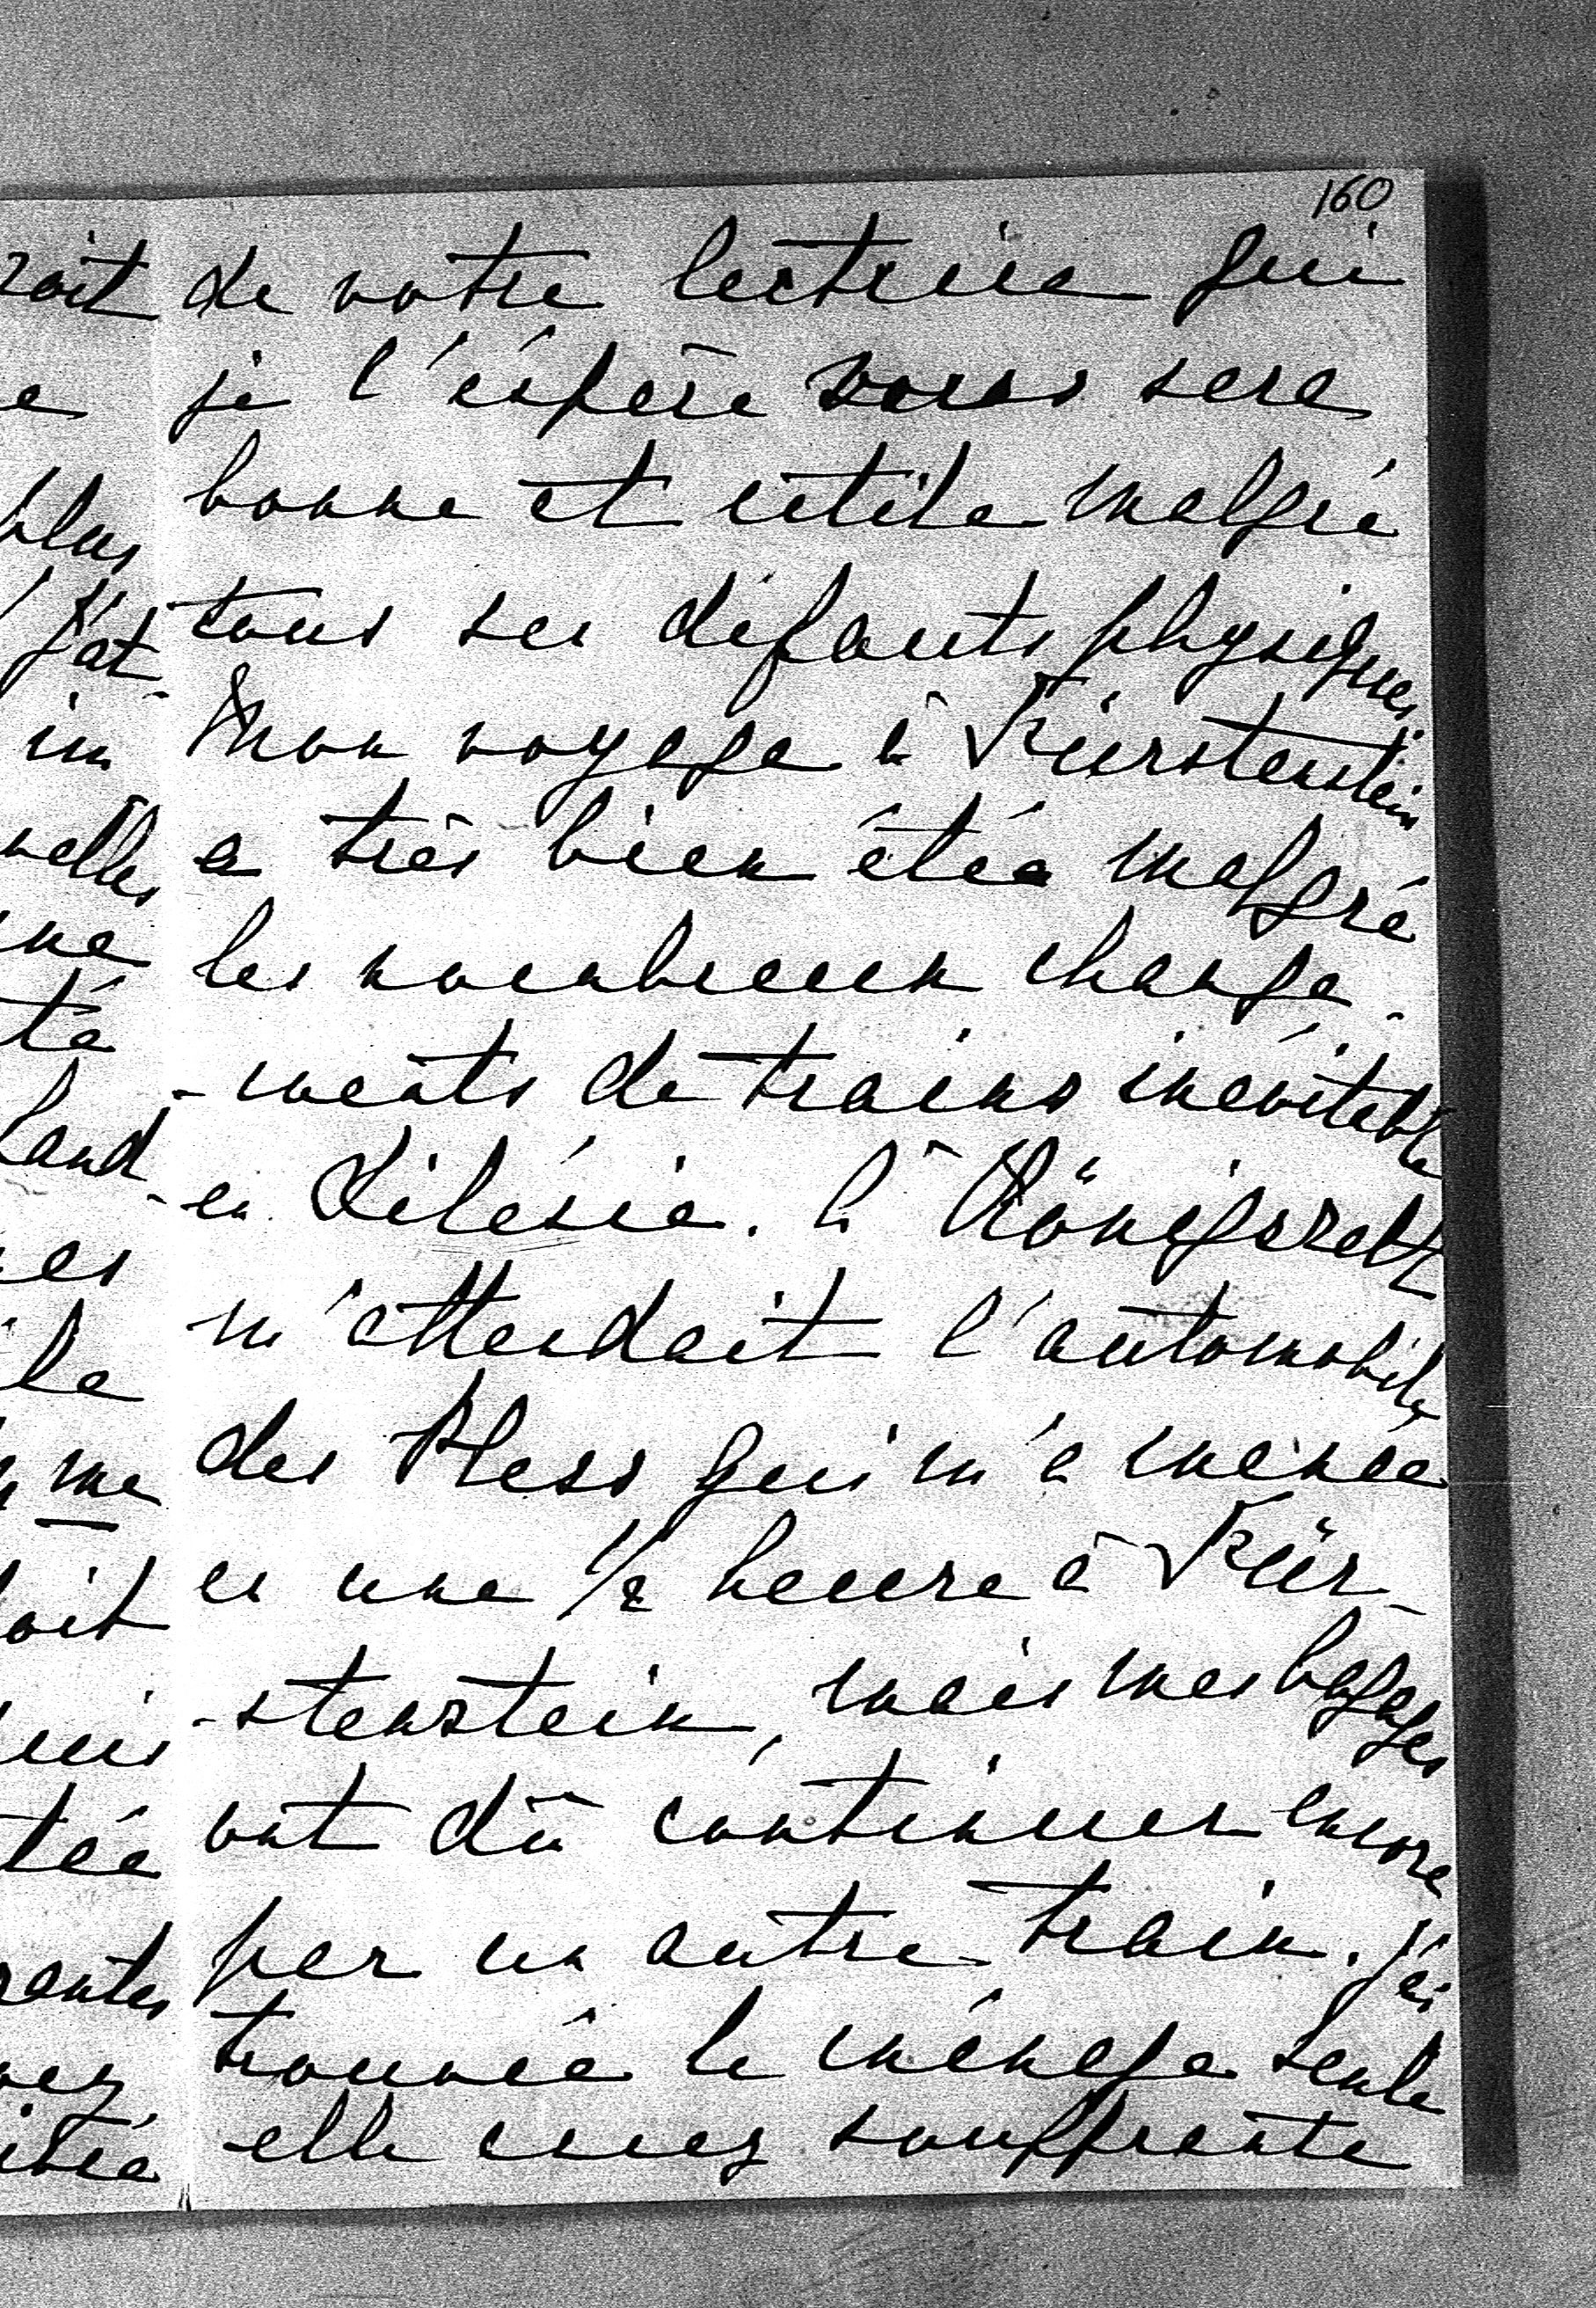 160
de votre lectrice qui
je l'éspère vous sera
bonne et utile malgré
tous ses défauts physiques.
Mon voyage à Fürstenstein
a très bien étée malgré
les nombreux change-
-ments de trains inévitable
en Silésie. à Königszelt
m'attendait l'automobile
des Pless qui m'a menée
en une 1/2 heure à Für-
-stenstein, mais mes bagages
ont dû continuer encore
par un autre train. J'ai
trouvée le ménage seule
elle assez souffrante